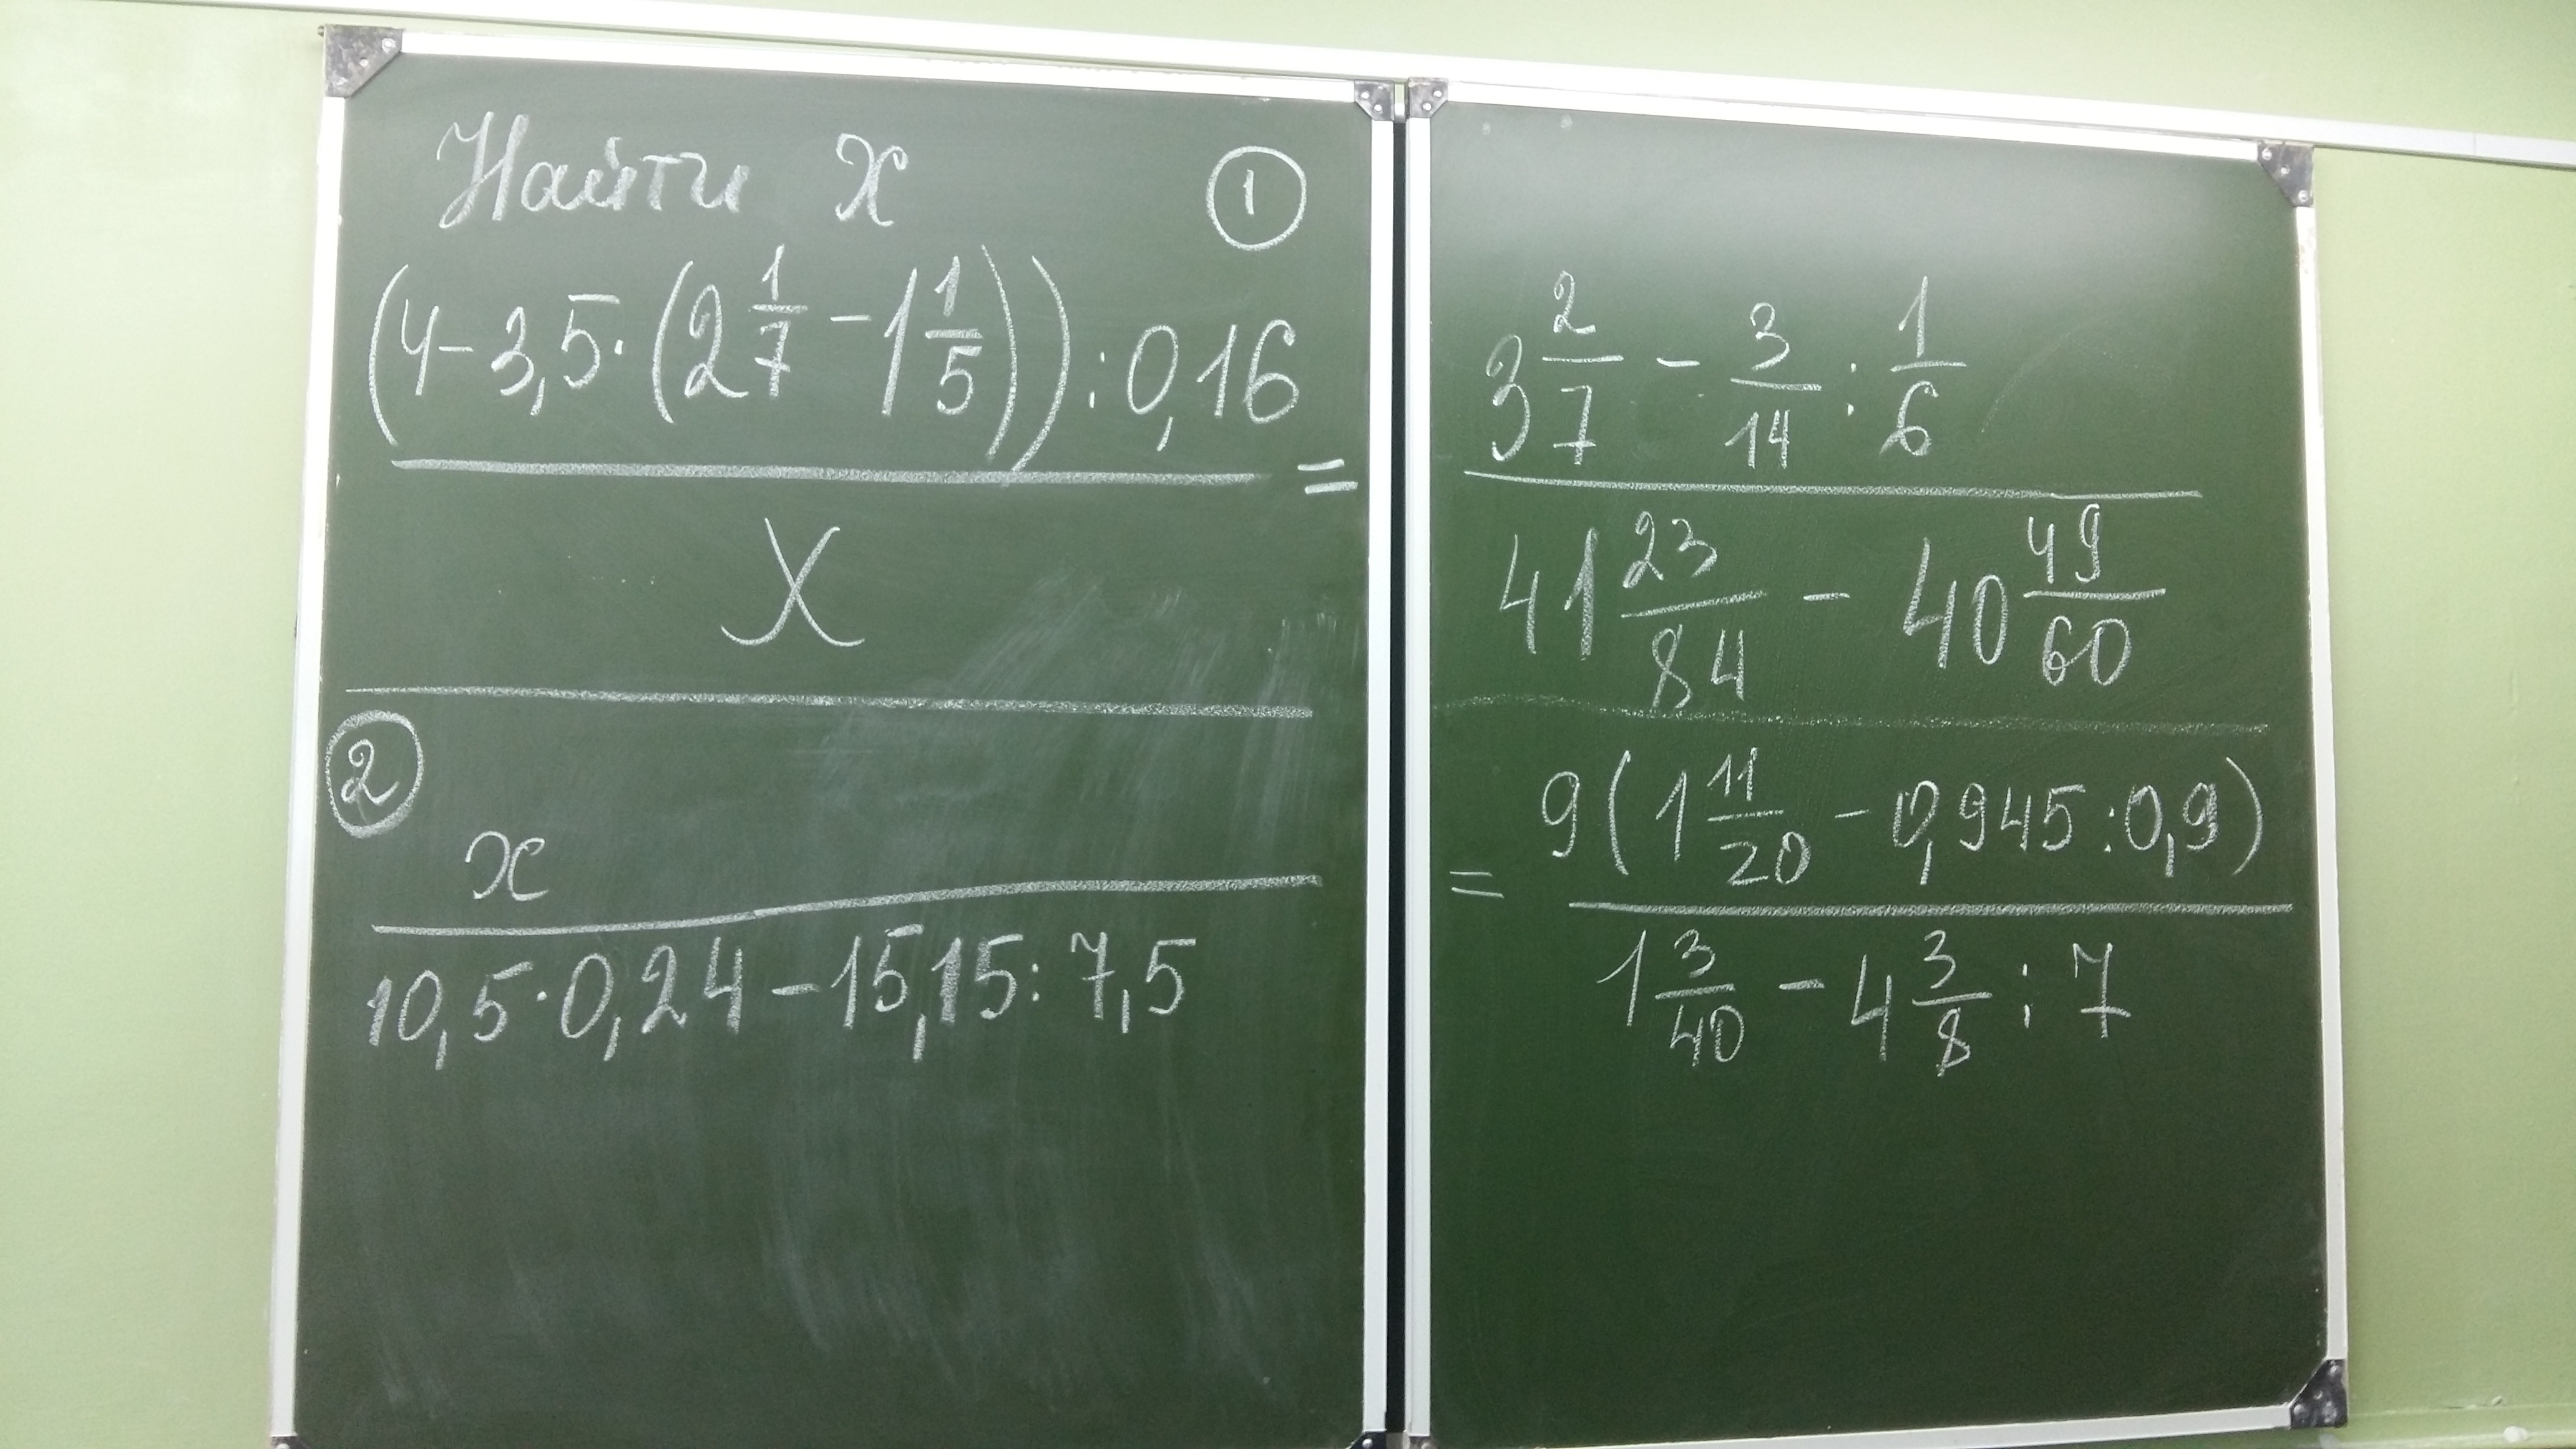 Найти x ①
(4-3,5·(2 1/7 - 1 1/5)):0,16 / X = (3 2/7 - 3/14 : 1/6) / (41 23/84 - 40 49/60)
②
x / (10,5·0,24-15,15:7,5) = 9(1 11/20 - 0,945:0,9) / (1 3/40 - 4 3/8 : 7)